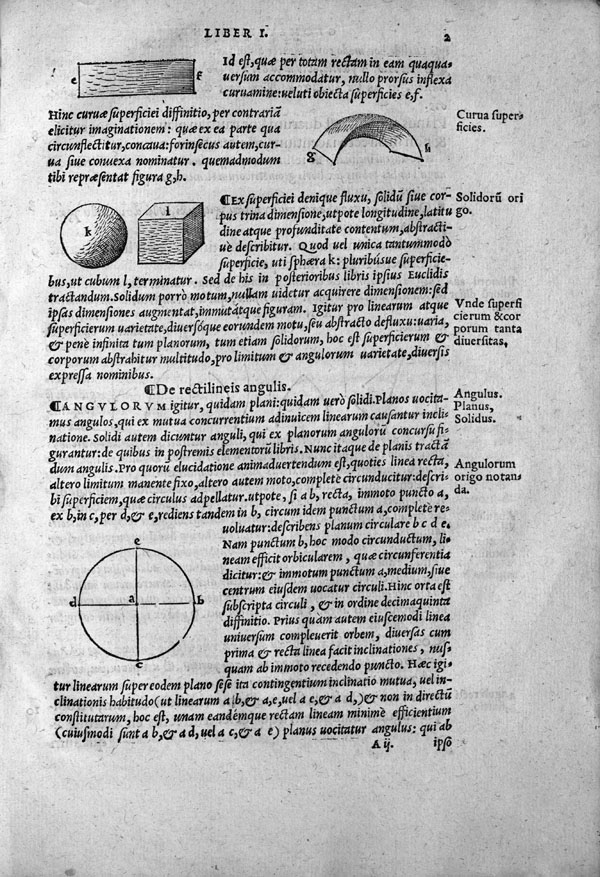 LIBER I.
2
e
f
Id est, quæ per totam rectam in eam quaqua-
uersum accommodatur, nullo prorsus inflexa
curuamine: ueluti obiecta superficies e, f.
Hinc curuæ superficiei diffinitio, per contrariã
elicitur imaginationem: quæ ex ea parte qua
circunflectitur, concaua: forinsecus autem, cur-
ua siue conuexa nominatur. quemadmodum
tibi repræsentat figura g, h.
g
h
Curua super-
ficies.
k
l
¶Ex superficiei denique fluxu, solidũ siue cor-
pus trina dimensione, utpote longitudine, latitu
dine atque profunditate contentum, abstracti-
uè describitur. Quod uel unica tantummodò
superficie, uti sphæra k: pluribúsue superficie-
bus, ut cubum l, terminatur. Sed de his in posterioribus libris ipsius Euclidis
tractandum. Solidum porrò motum, nullam uidetur acquirere dimensionem: sed
ipsas dimensiones augmentat, immutátque figuram. Igitur pro linearum atque
superficierum uarietate, diuersóque eorundem motu, seu abstracto defluxu: uaria,
& penè infinita tum planorum, tum etiam solidorum, hoc est superficierum &
corporum abstrahitur multitudo, pro limitum & angulorum uarietate, diuersis
expressa nominibus.
Solidorũ ori
go.
Vnde superfi
cierum & cor
porum tanta
diuersitas.
¶De rectilineis angulis.
¶ANGVLORVM igitur, quidam plani: quidam uerò solidi. Planos uocita-
mus angulos, qui ex mutua concurrentium adinuicem linearum causantur incli-
natione. Solidi autem dicuntur anguli, qui ex planorum angulorũ concursu fi-
gurantur: de quibus in postremis elementorũ libris. Nunc itaque de planis tractã
dum angulis. Pro quorũ elucidatione animaduertendum est, quoties linea recta,
altero limitum manente fixo, altero autem moto, complete circunducitur: descri-
bi superficiem, quæ circulus adpellatur. utpote, si a b, recta, immoto puncto a,
ex b, in c, per d, & e, rediens tandem in b, circum idem punctum a, complete re-
uoluatur: describens planum circulare b c d e.
Nam punctum b, hoc modo circunductum, li-
neam efficit orbicularem, quæ circunferentia
dicitur: & immotum punctum a, medium, siue
centrum eiusdem uocatur circuli. Hinc orta est
subscripta circuli, & in ordine decimaquinta
diffinitio. Prius quàm autem eiuscemodi linea
uniuersum compleuerit orbem, diuersas cum
prima & recta linea facit inclinationes, nus-
quam ab immoto recedendo puncto. Hæc igi-
tur linearum super eodem plano sese ita contingentium inclinatio mutua, uel in-
clinationis habitudo (ut linearum a b, & a, e, uel a c, & a d,) & non in directũ
constitutarum, hoc est, unam eandémque rectam lineam minimè efficientium
(cuiusmodi sunt a b, & a d, uel a c, & a e) planus uocitatur angulus: qui ab
Angulus.
Planus,
Solidus.
Angulorum
origo notan-
da.
e
d
a
b
c
A ij.
ipso